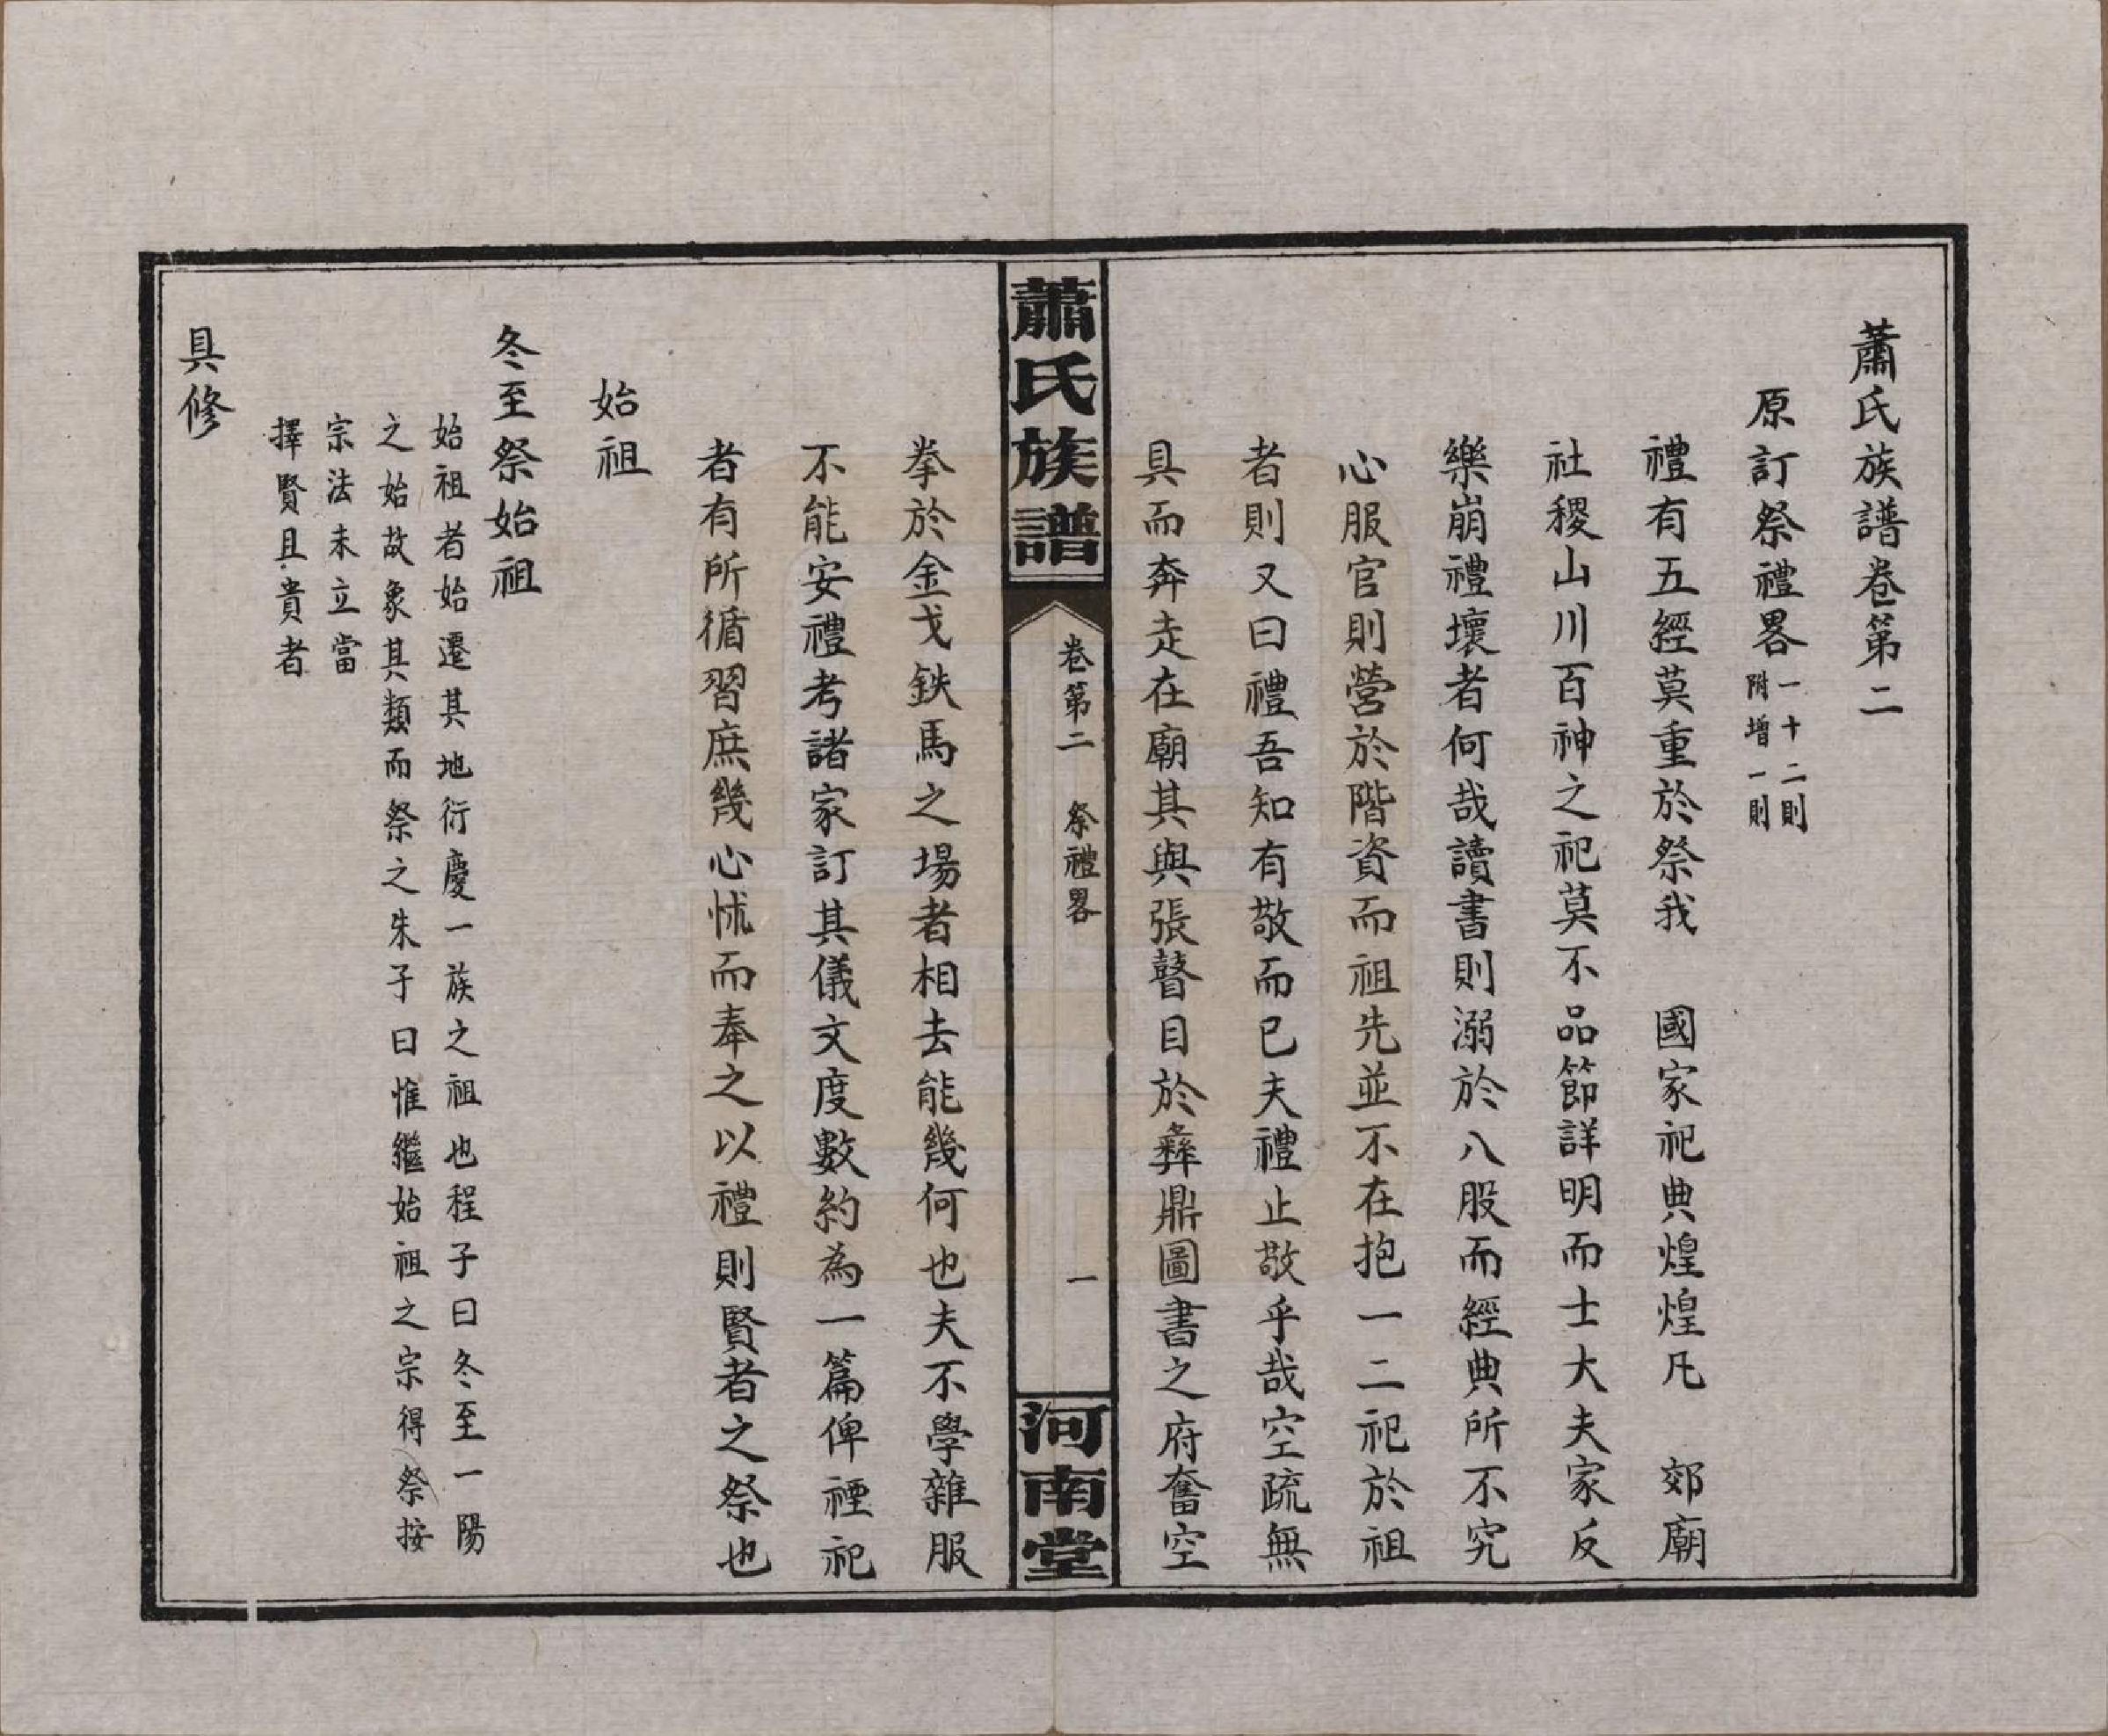 蕭氏族譜卷第二
原訂祭禮畧
一十二則
附增一則
禮有五經莫重於祭我 國家祀典煌煌凡 郊廟
社稷山川百神之祀莫不品節詳明而士大夫家反
樂崩禮壞者何哉讀書則溺於八股而經典所不究
心服官則營於階資而祖先並不在抱一二祀於祖
者則又曰禮吾知有敬而已夫禮止敬乎哉空疏無
具而奔走在廟其與張瞽目於彝鼎圖書之府奮空
蕭氏族譜
卷第二 祭禮畧
一
河南堂
拳於金戈鉄馬之場者相去能幾何也夫不學雜服
不能安禮考諸家訂其儀文度數約為一篇俾禋祀
者有所循習庶幾心怵而奉之以禮則賢者之祭也
始祖
冬至祭始祖
始祖者始遷其地衍慶一族之祖也程子曰冬至一陽
之始故象其類而祭之朱子曰惟繼始祖之宗得祭按
宗法未立當
擇賢且貴者
具修